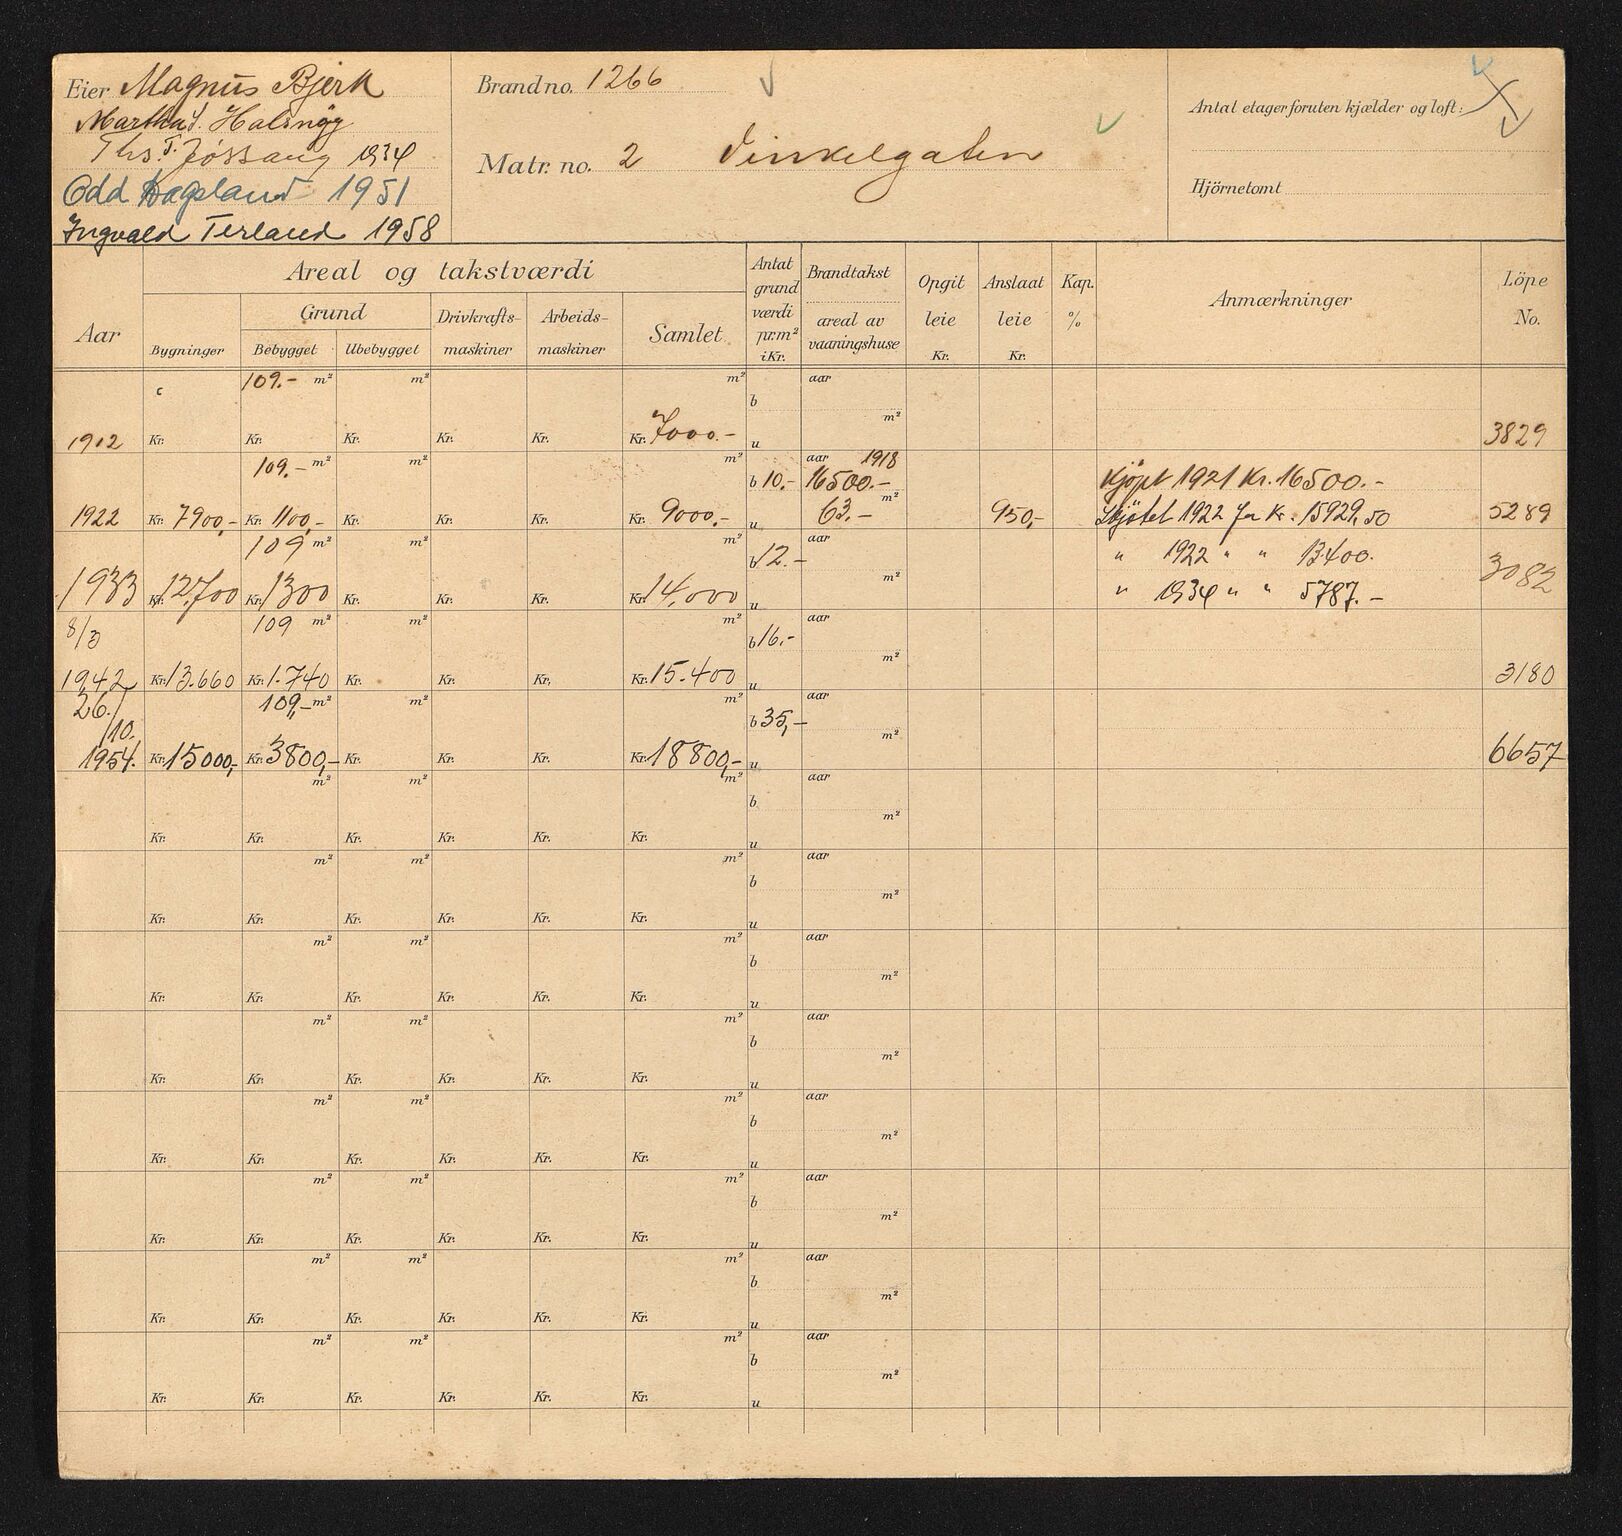 Eier Magnus Bjerk
Martha S. Halsnøy
Ths. T. Jøssang 1934
Odd Hagsland 1951
Ingvald Terland 1958
Brandno. 1266
Matr. no. 2 Vinkelgaten
Antal etager foruten kjælder og loft:
Hjörnetomt
Aar
Areal og takstværdi
Bygninger
Grund
Bebygget
Ubebygget
Drivkrafts-
maskiner
Arbeids-
maskiner
Samlet
Antat
grund
værdi
pr. m²
i Kr.
Brandtakst
areal av
vaaningshuse
Opgit
leie
Kr.
Anslaat
leie
Kr.
Kap.
%
Anmærkninger
Löpe
No.
c 109.- m² m² m² b aar m²
1912 Kr. Kr. Kr. Kr. Kr. Kr. 7000.- u 3829
109.- m² m² m² b 10.- aar 1918 16500.- m² Kjöpt 1921 Kr. 16500.-
1922 Kr. 7900,- Kr. 1100,- Kr. Kr. Kr. Kr. 9000.- u 63.- 950,- Skjötet 1922 for Kr. 15929,50 5289
109 m² m² m² b 12.- aar m² " 1922 " " 13400.
1933 Kr. 12,700 Kr. 1300 Kr. Kr. Kr. Kr. 14,000 u " 1934 " " 5787.- 3082
8/3 109 m² m² m² b 16.- aar m²
1942 Kr. 13.660 Kr. 1.740 Kr. Kr. Kr. Kr. 15.400 u 3180
26./10. 109,- m² m² m² b 35,- aar m²
1954. Kr. 15000,- Kr. 3800,- Kr. Kr. Kr. Kr. 18800,- u 6657
m² m² m² b aar m²
Kr. Kr. Kr. Kr. Kr. Kr. u
m² m² m² b aar m²
Kr. Kr. Kr. Kr. Kr. Kr. u
m² m² m² b aar m²
Kr. Kr. Kr. Kr. Kr. Kr. u
m² m² m² b aar m²
Kr. Kr. Kr. Kr. Kr. Kr. u
m² m² m² b aar m²
Kr. Kr. Kr. Kr. Kr. Kr. u
m² m² m² b aar m²
Kr. Kr. Kr. Kr. Kr. Kr. u
m² m² m² b aar m²
Kr. Kr. Kr. Kr. Kr. Kr. u
m² m² m² b aar m²
Kr. Kr. Kr. Kr. Kr. Kr. u